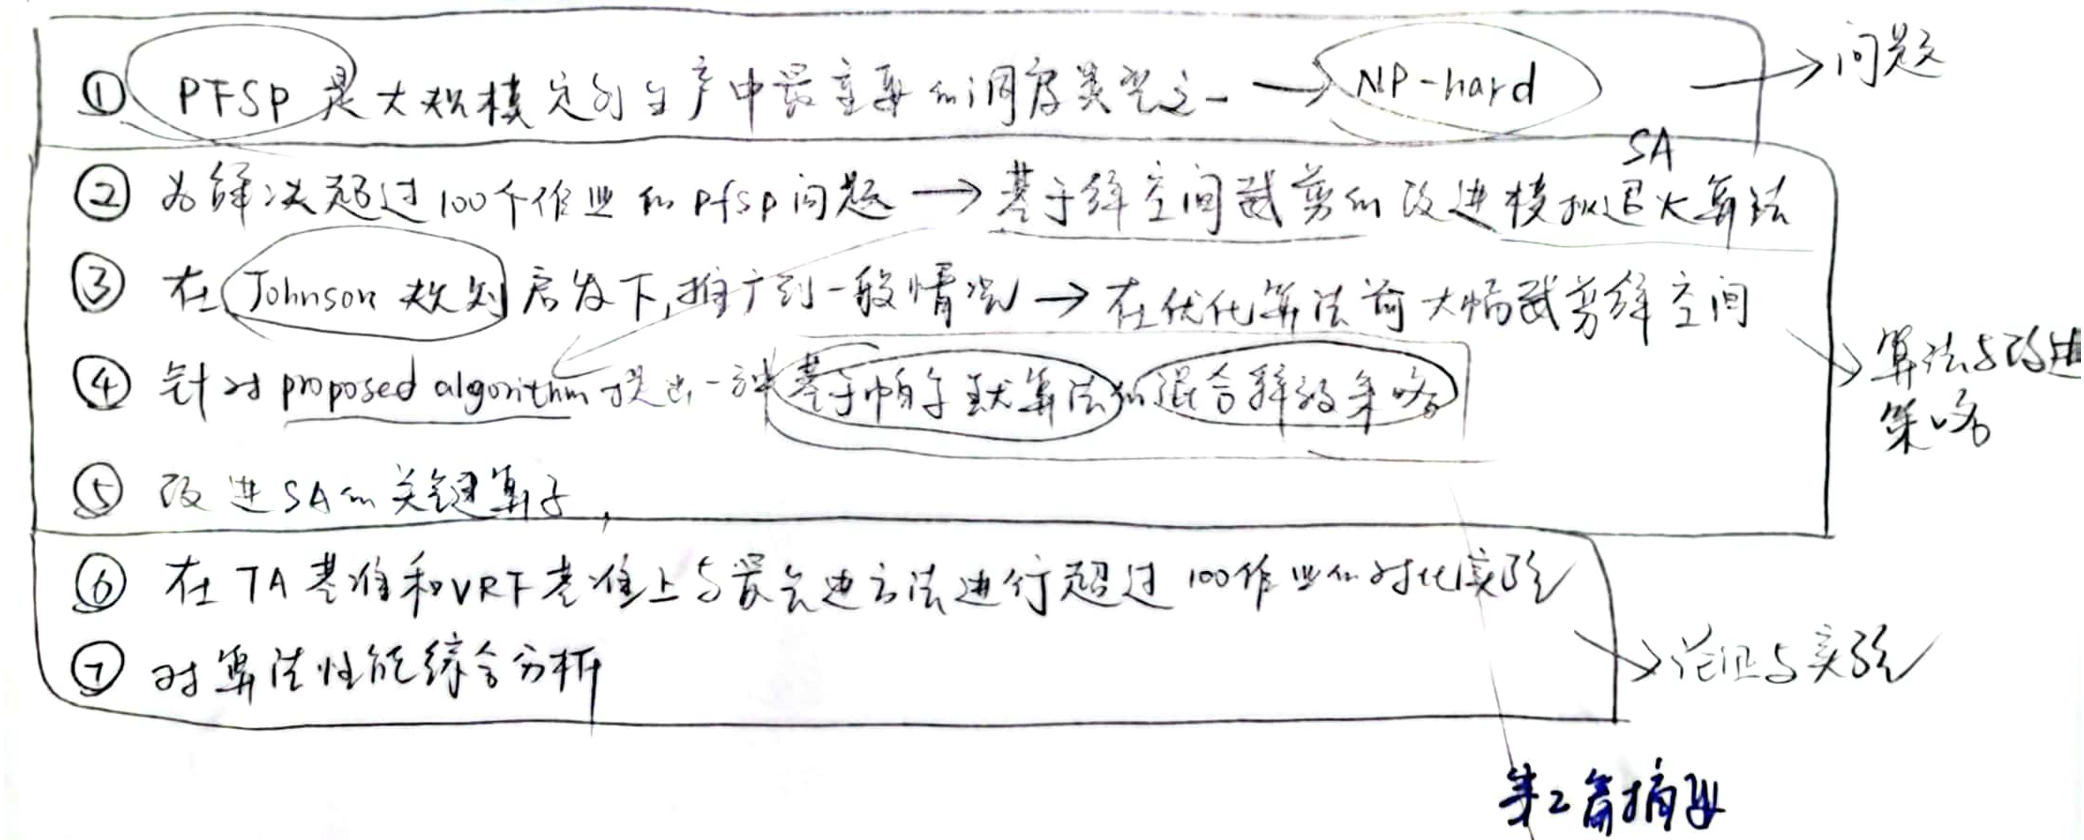 ① PFSP是大规模定制生产中最主要的调度类型之一 → NP-hard → 问题
SA
② 为解决超过100个作业的pfsp问题 → 基于解空间裁剪的改进模拟退火算法
③ 在Johnson规则启发下,推广到一般情况 → 在优化算法前大幅裁剪解空间
④ 针对proposed algorithm提出一种基于帕尔默算法的混合释放策略
算法与改进
策略
⑤ 改进SA的关键算子,
⑥ 在TA基准和VRF基准上与最先进方法进行超过100作业的对比实验
⑦ 对算法性能综合分析
论证与实验
第2篇摘要